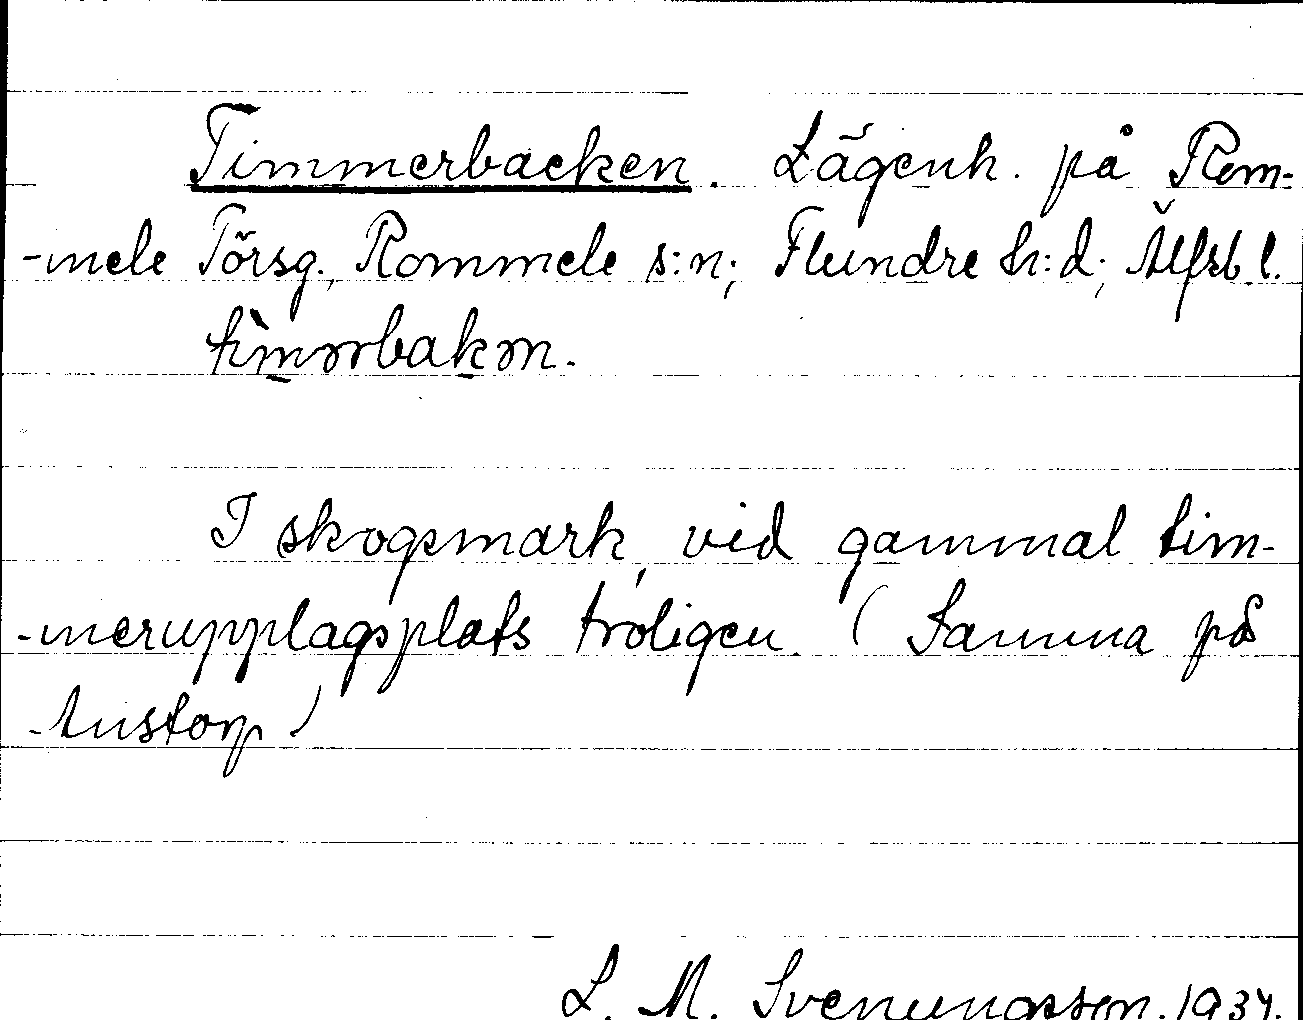 Timmerbacken. Lägenh. på Rom-
-mele Törsg., Rommele s:n; Flundre h:d; Älfsb. l.
I skogsmark, vid gammal tim-
-merupplagsplats troligen. (Samma på
Austorp)
L. M. Svenungsson. 1934.